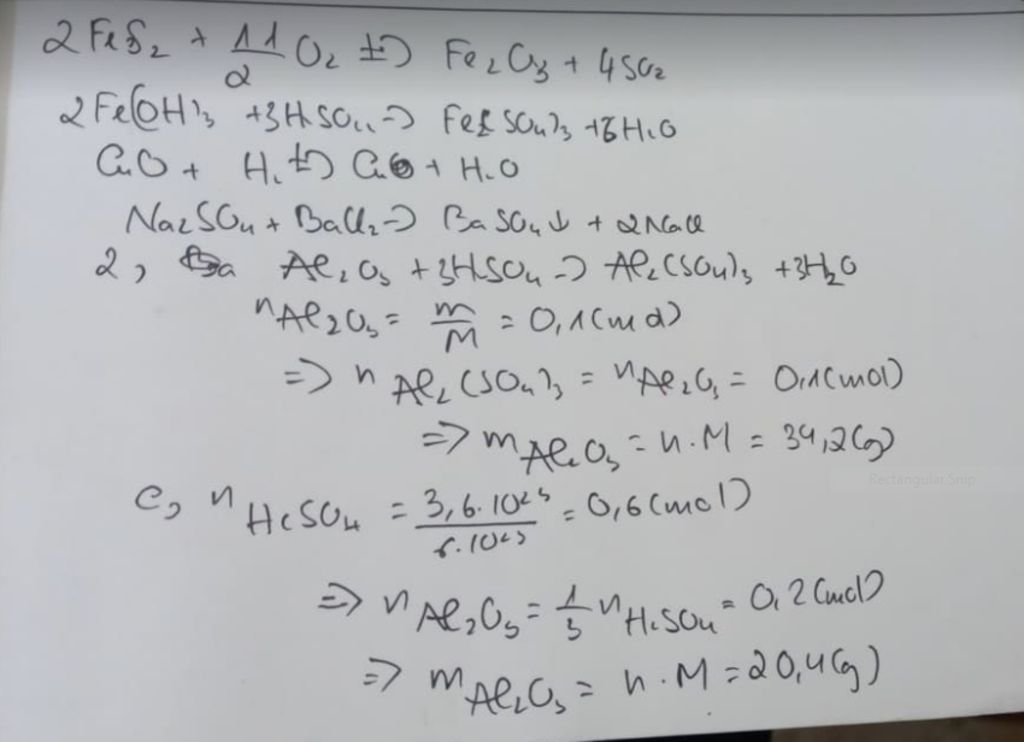 2 FeS₂ + 11/2 O₂ t°→ Fe₂O₃ + 4SO₂
2Fe(OH)₃ + 3H₂SO₄ → Fe₂(SO₄)₃ + 6H₂O
CuO + H₂ t°→ Cu + H₂O
Na₂SO₄ + BaCl₂ → BaSO₄↓ + 2NaCl
2, a Al₂O₃ + 3H₂SO₄ → Al₂(SO₄)₃ + 3H₂O
nAl₂O₃ = m/M = 0,1(mol)
=> n Al₂(SO₄)₃ = nAl₂O₃ = 0,1(mol)
=> m Al₂O₃ = n.M = 34,2(g)
c, n H₂SO₄ = 3,6.10²³/6.10²³ = 0,6(mol)
=> n Al₂O₃ = 1/3 n H₂SO₄ = 0,2(mol)
=> m Al₂O₃ = n.M = 20,4(g)
Rectangular Snip